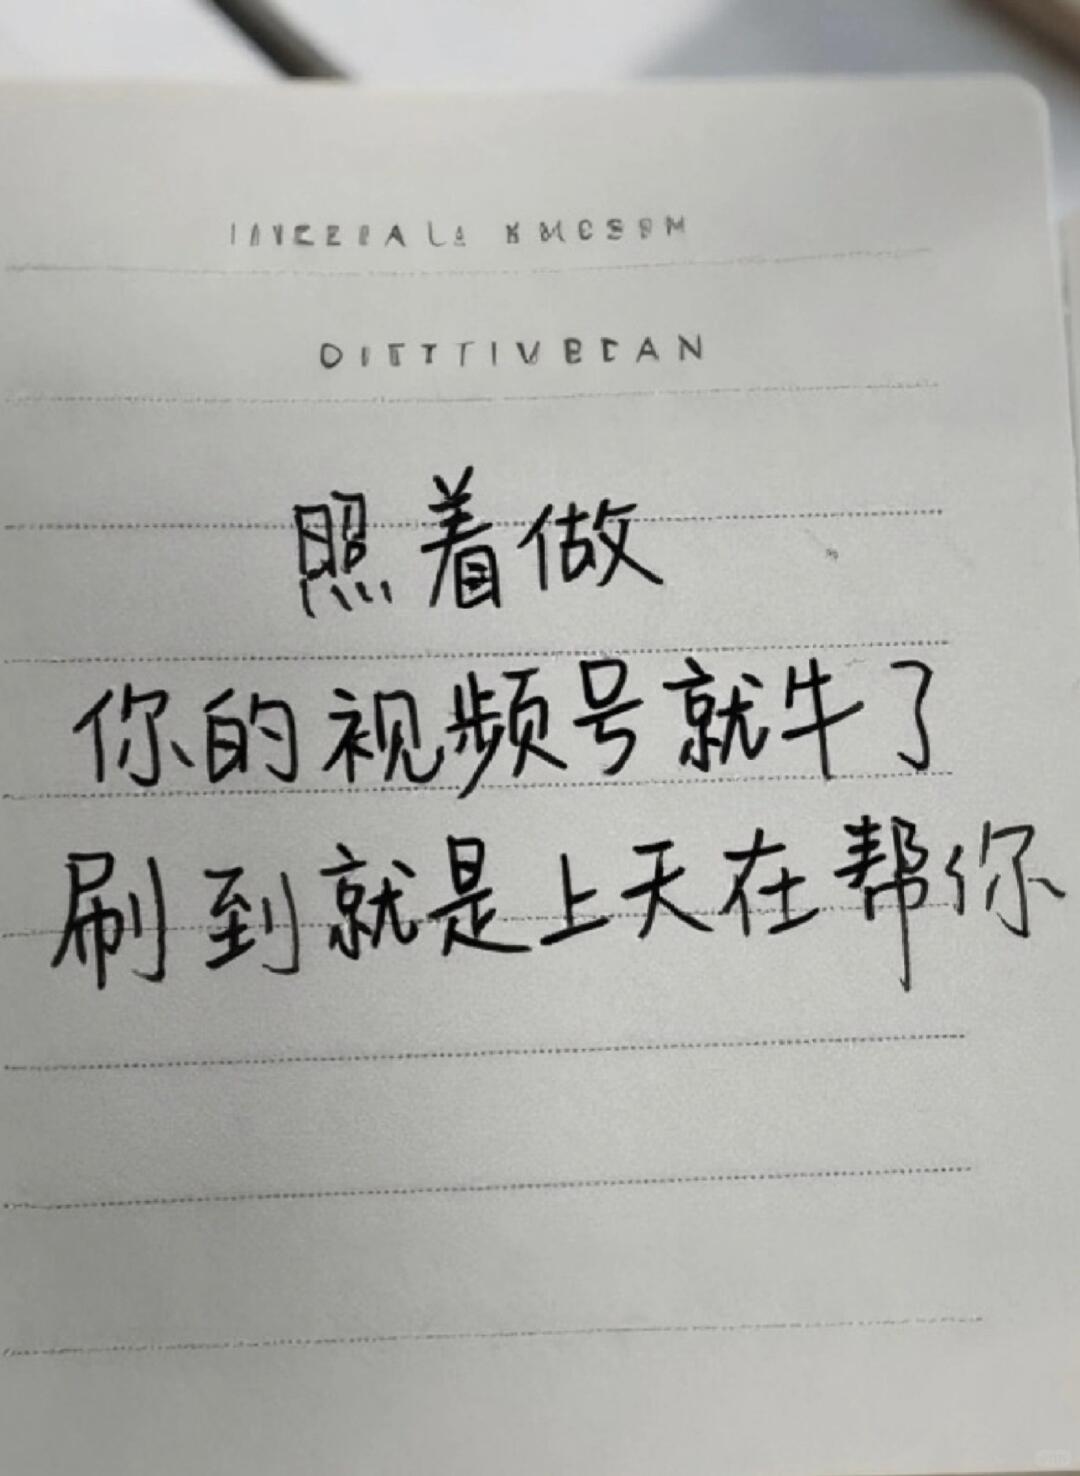 照着做
你的视频号就牛了
刷到就是上天在帮你